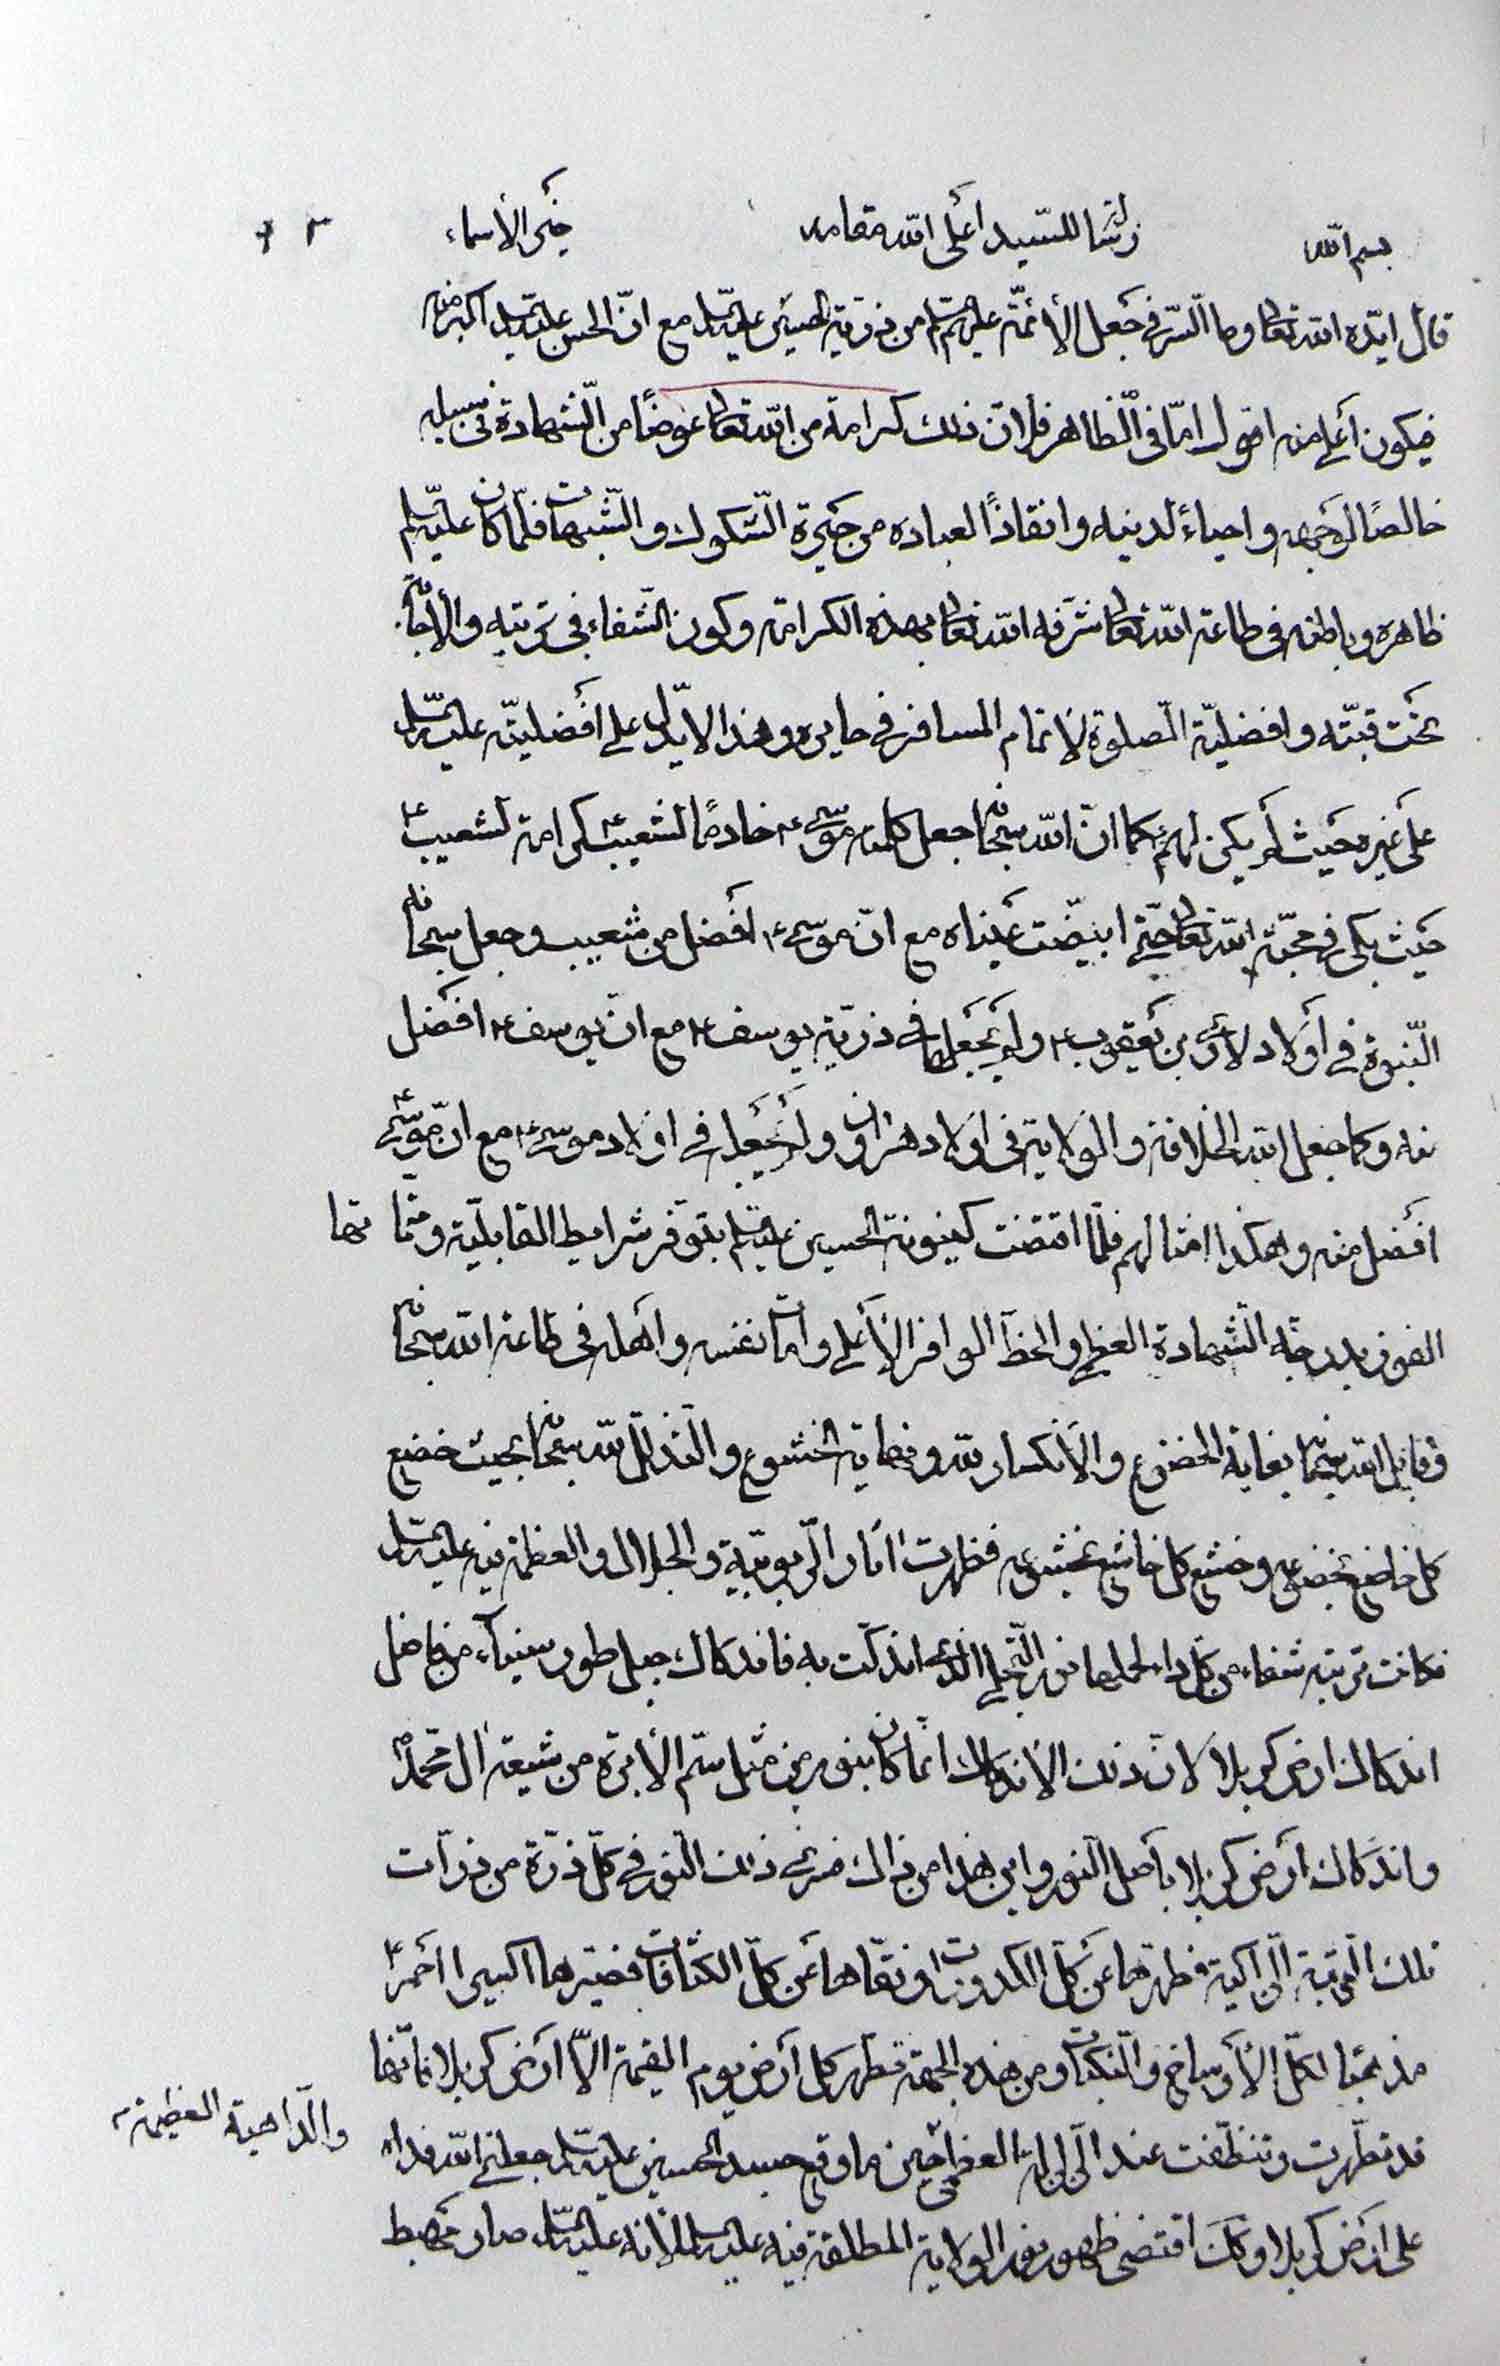 بسم الله رسالة للسيد اعلى الله مقامه خير الأسماء
قال ايّده الله تعالى وما السّر في جعل الأئمّة عليهم السلام من ذريّة الحسين عليه السلام مع انّ الحسن عليه السلام اكبر منه
فيكون أعلى منه اقول امّا في الظّاهر فلانّ ذلك كرامة من الله تعالى عوضًا من الشّهادة في سبيله
خالصًا لوجهه واحياء لدينه وانقاذًا لعباده من حيرة الشّكوك والشّبهات فلمّا كان عليه السلم
ظاهره وباطنه في طاعة الله تعالى شرّفه الله تعالى بهذه الكرامة وكون الشّفاء في تربته والأجابة
تحت قبّته وافضليّة الصلوة لاتمام المسافر في حايره وهذا لا يدلّ على أفضليّته عليه السلام
على غيره حيث لم يكن لهم كما انّ الله سبحانه جعل كليمه موسى ع خادمًا لشعيب ع كرامة لشعيب ع
حيث بكى في محبّة الله تعالى حتّى ابيضّت عيناه مع انّ موسى ع أفضل من شعيب وجعل سبحانه
النّبوة في أولاد لاوي بن يعقوب ع ولم يجعلها في ذريّة يوسف ع مع انّ يوسف ع افضل
منه وكما جعل الله الخلافة والولاية في اولاد هرون ولم يجعل في اولاد موسى ع مع انّ موسى ع
أفضل منه وهكذا امثالهم فلمّا اقتضت كينونة الحسين عليه السلم بتوفر شرايط القابليّة ومتمّاتها
الفوز بدرجة الشّهادة العظمى والحظّ الوافر الأعلى وامات نفسه وأهله في طاعة الله سبحانه
وقابل الله سبحانه بغاية الخضوع والأنكسار لله ونهاية الخشوع والتّذلّل لله سبحانه بحيث خضع
كل خاضع بخضوعه وخشع كل خاشع بخشوعه فظهرت اثار الرّبوبيّة والجلال والعظمة فيه عليه السلام
فكانت تربته شفاء من كلّ داء لحملها نور التّجلى الذى اندكّت به فاندكاك جبل طور سيناء من فاضل
اندكاك ارض كربلا لانّ ذلك الاندكاك انّما كان بنور من مثل سمّ الأبرة من شيعة ال محمّد ص
واندكاك أرض كربلا بأصل النّور واين هذا من ذاك فسرى ذلك النّور في كلّ ذرّة من ذرّات
تلك التّربة الزّاكية فطهرتها عن كلّ الكدورات ونقّاها عن كلّ الكثافات فصيّرها اكسيرا أحمرا
مذهبًا لكلّ الأوساخ والنّكبات ومن هذه الجهة تطهر كل أرض يوم القيمة الّا أرض كربلا فانّها
قد تطهّرت وتنظّفت عند الزّلزلة العظمى والدّاهية العظيمة حين ما وقع جسد الحسين عليه السلام جعلنى الله فداه
على ارض كربلا وكذلك اقتضى ظهور نور الولاية المطلقة فيه عليه السلام لانه عليه السلام صار مهبط